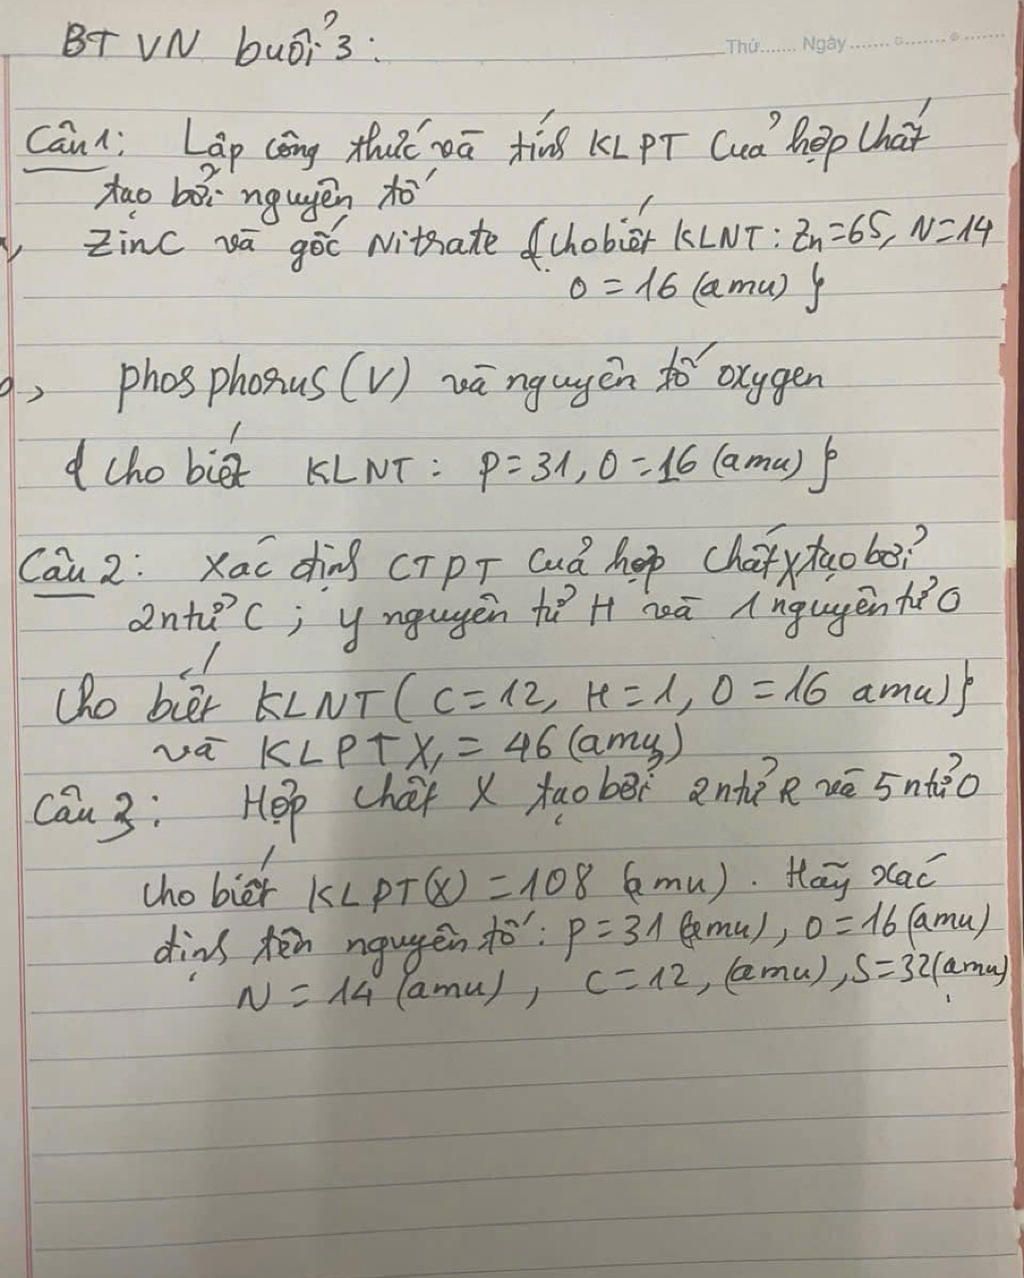 BTVN buổi 3:
Thứ....... Ngày
Câu 1: Lập công thức và tính KLPT của hợp chất
tạo bởi nguyên tố
Zinc và gốc Nitrate { cho biết KLNT: Zn=65, N=14
O = 16 (amu) }
, phosphorus (V) và nguyên tố oxygen
{ cho biết KLNT: P=31, O=16 (amu) }
Câu 2: Xác định CTPT của hợp chất X tạo bởi
2 ntử C ; y nguyên tử H và 1 nguyên tử O
Cho biết KLNT ( C=12, H=1, O=16 amu) }
và KLPT X, = 46 (amu)
Câu 3: Hợp chất X tạo bởi 2 ntử R và 5 ntử O
cho biết KLPT(X) = 108 (amu). Hãy xác
định tên nguyên tố: P=31 (amu), O=16 (amu)
N = 14 (amu), C=12, (amu), S=32 (amu)